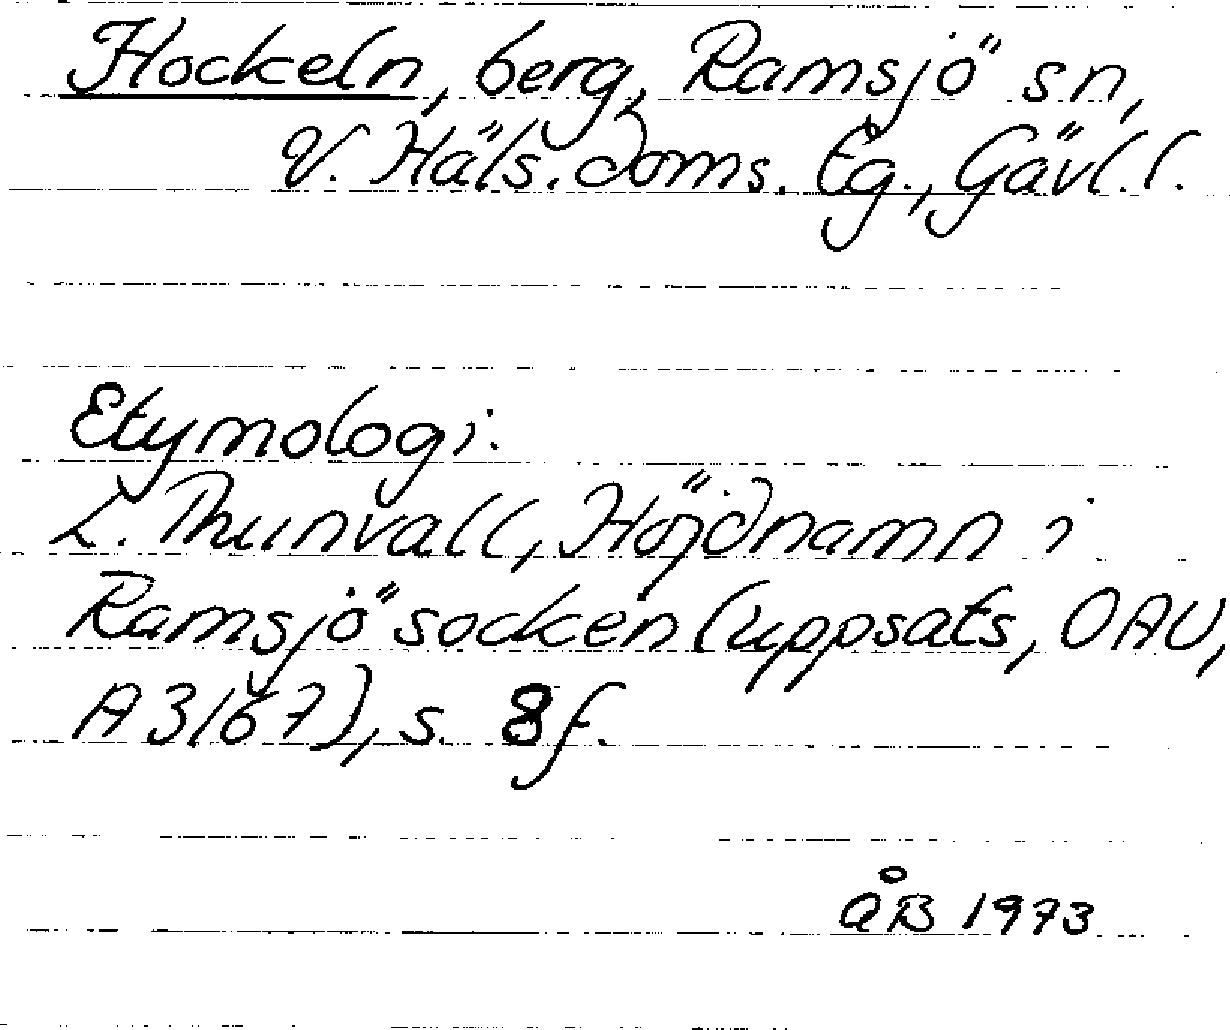 Hockeln, berg, Ramsjö sn,
V. Häls. doms. Eg., Gävl. l.
Etymologi:
L. Thunvall, Höjdnamn i
Ramsjö socken (uppsats, OAU,
A 3167), s. 8 f.
ÅB 1973